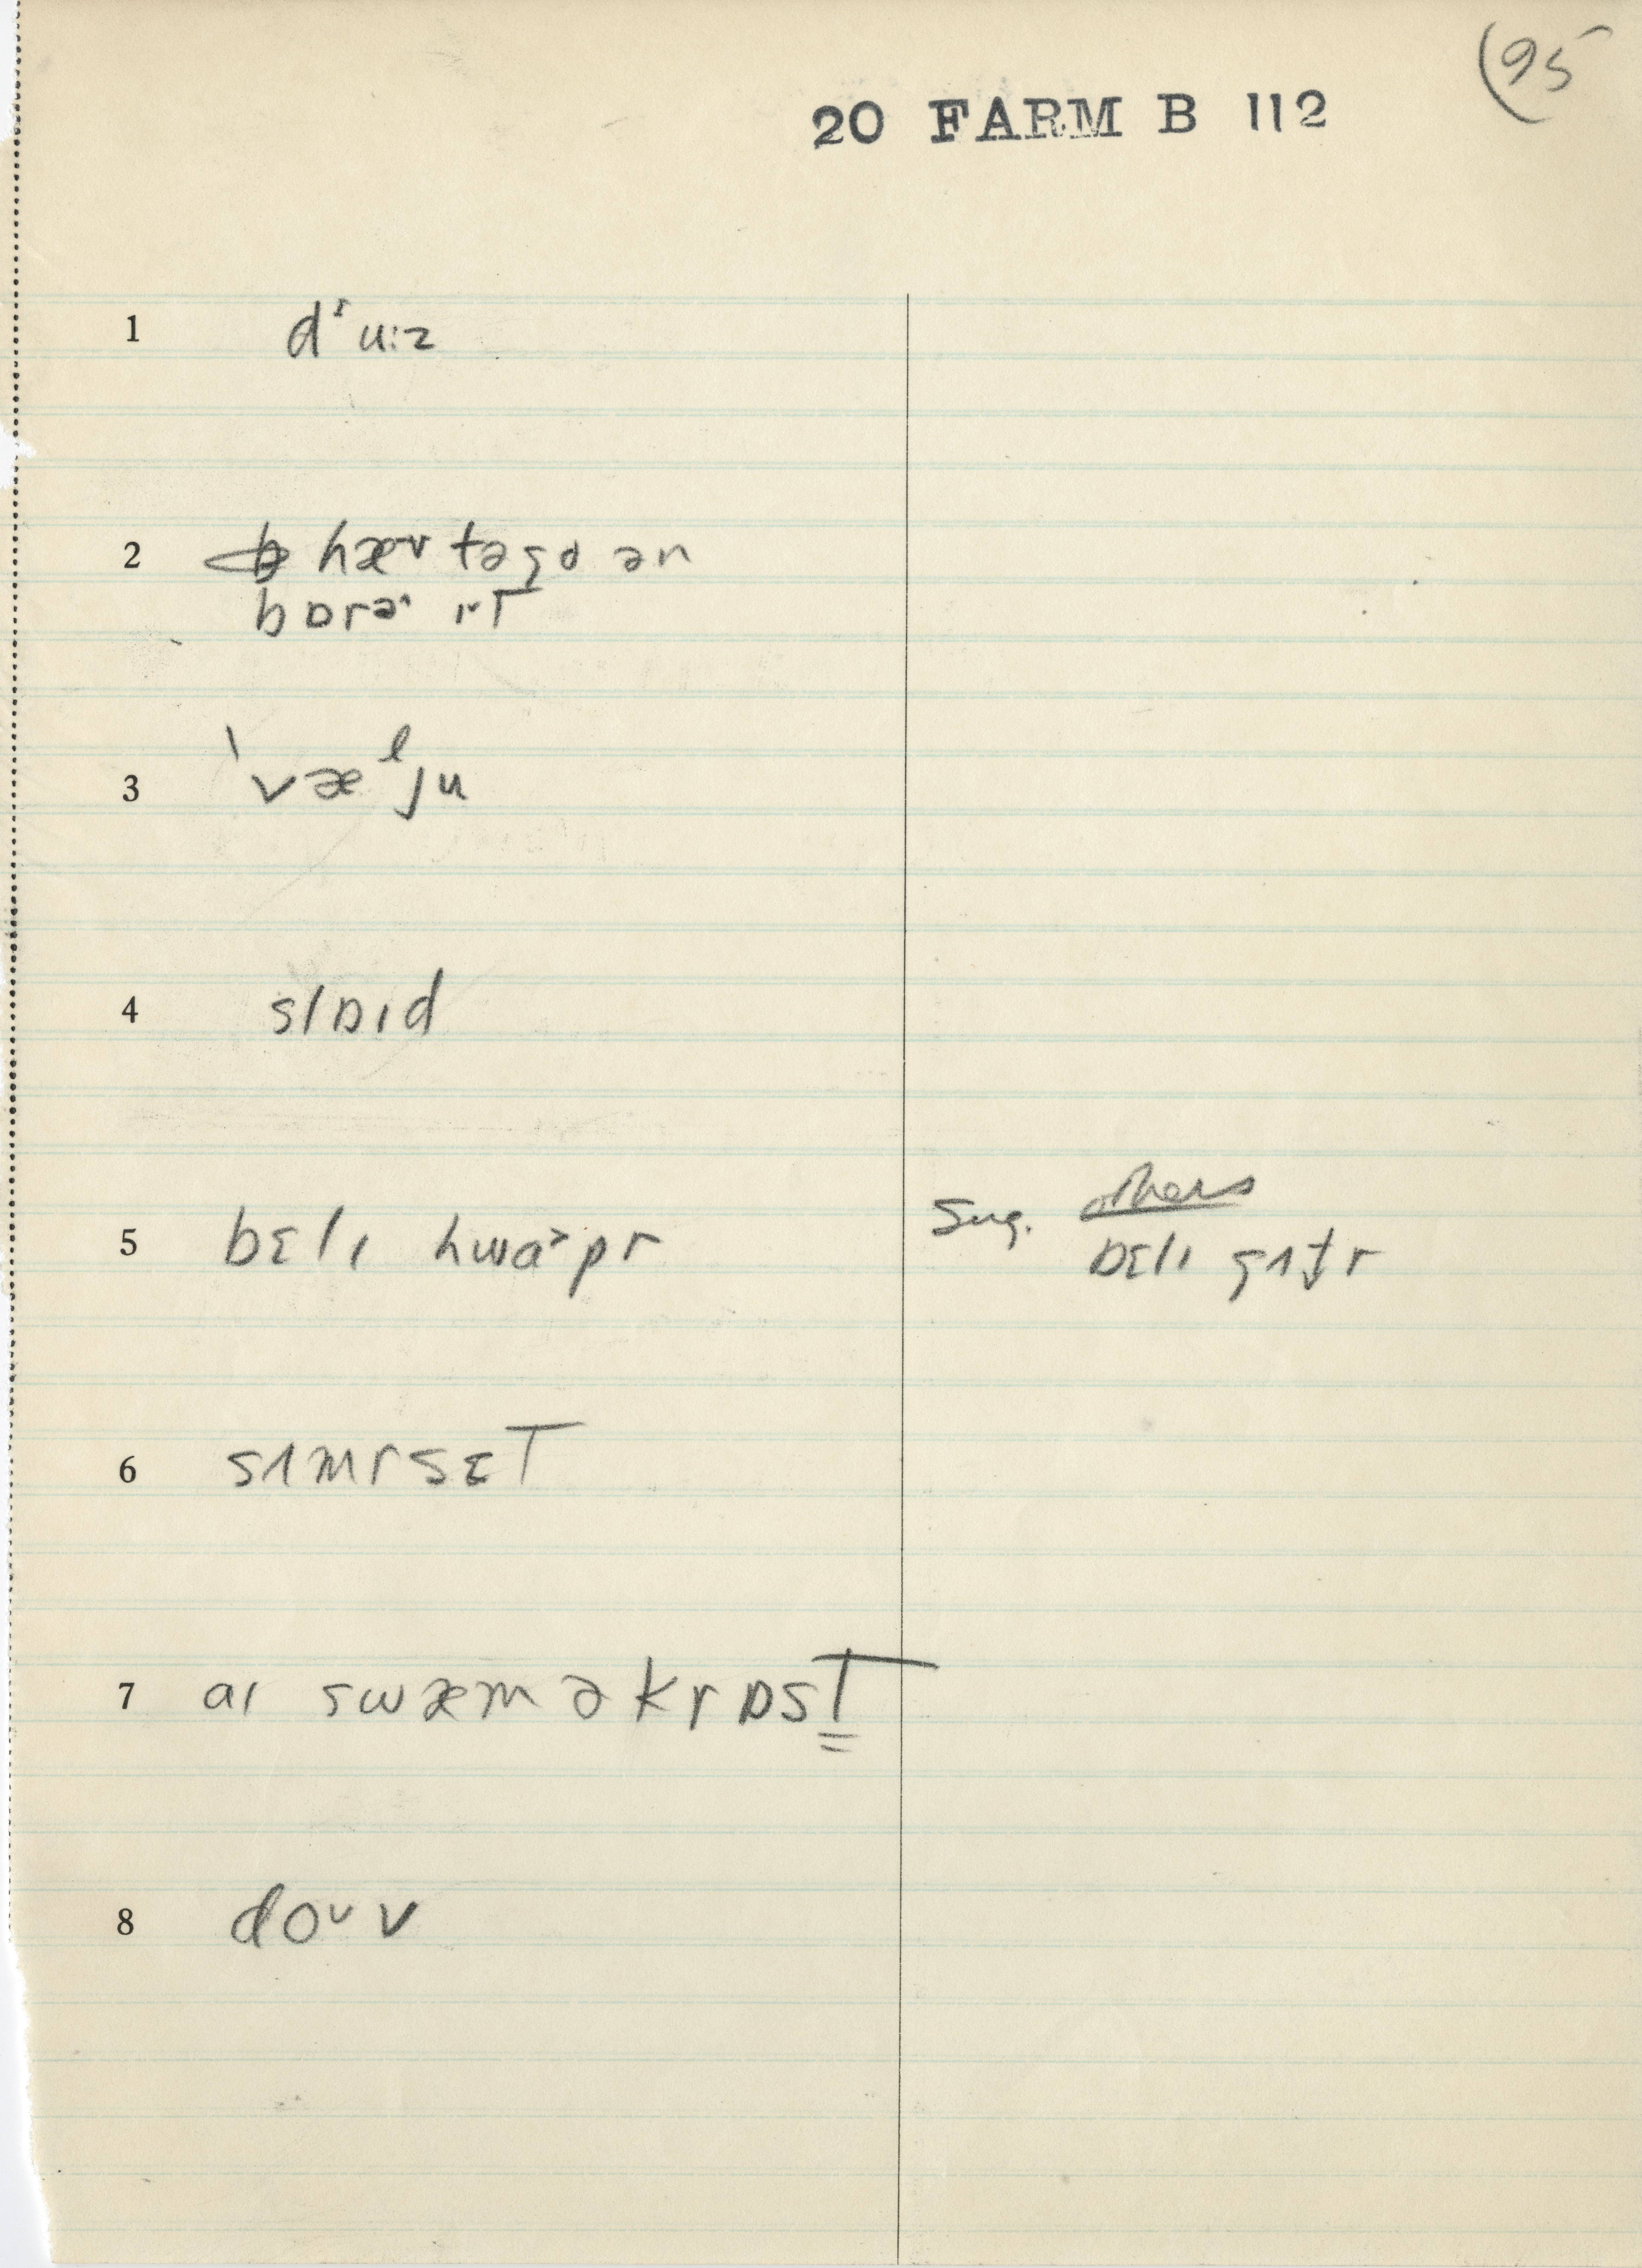 (95
20 FARM B 112
1 dᶦu:z
2 hæv təgo ən
bɒrəʳ ɪT
3 'væˡju
4 slɒɪd
5 bɛlɪ hwaᵊpr Sug. others
bɛlɪ gʌtr
6 sʌmrsɛT
7 aɪ swæm əkrɒsT
8 doᵘv